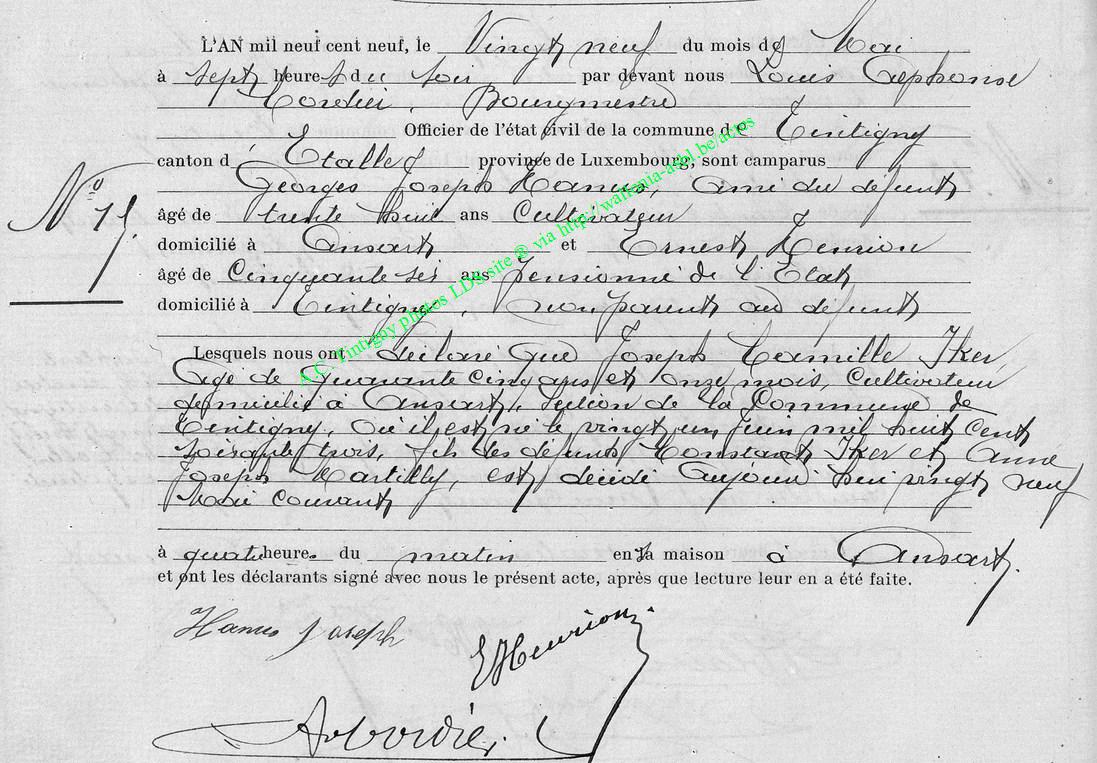 L'AN mil neuf cent neuf, le Vingt neuf du mois de Mai
à sept heures du soir par devant nous Louis Alphonse
Cordier, Bourgmestre
Officier de l'état civil de la commune de Tintigny
canton d'Etalle province de Luxembourg, sont camparus
Georges Joseph Hanus, ami du défunt
N° 11.
âgé de trente huit ans Cultivateur
domicilié à Ansart et Ernest Henrion
âgé de Cinquante six ans pensionné de l'Etat
domicilié à Tintigny, non parent au défunt
Lesquels nous ont déclaré que Joseph Camille Iker,
âgé de quarante cinq ans et onze mois, cultivateur
domicilié à Ansart, section de la Commune de
Tintigny, où il est né le vingt un juin mil huit cent
soixante trois, fils des défunts Constant Iker et Anne
Joseph Martilly, est décédé aujourd'hui vingt neuf
Mai courant
à quatre heures du matin en sa maison à Ansart.
et ont les déclarants signé avec nous le présent acte, après que lecture leur en a été faite.
Hanus Joseph
E Henrion
A Cordier
A.C. Tintigny photos LDS site ® via http://wallonia-asbl.be/actes